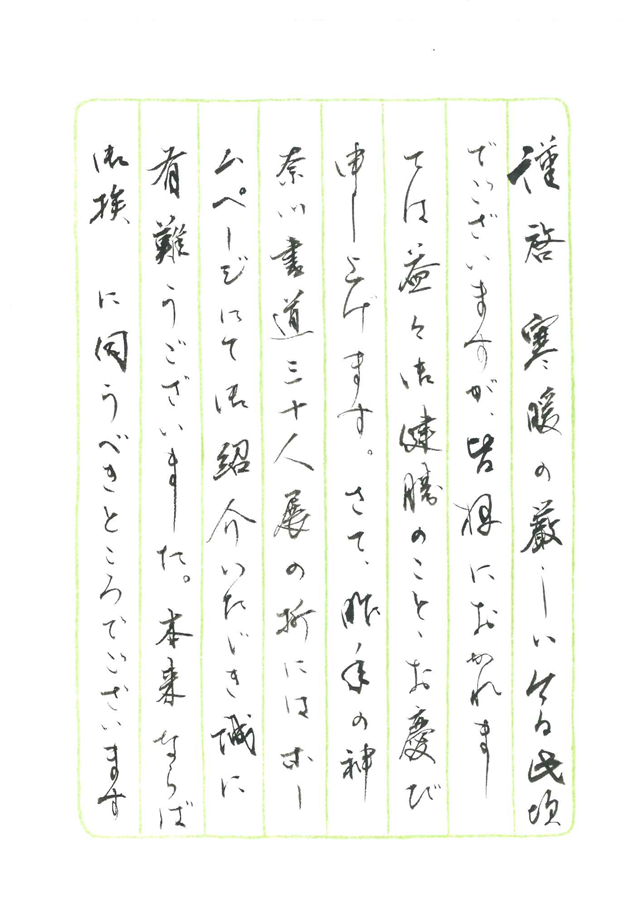 謹啓 寒暖の厳しい今日此頃
でございますが、皆様におかれまし
ては益々御健勝のこと、お慶び
申し上げます。さて、昨年の神
奈川書道三十人展の折にはホー
ムページにて御紹介いただき誠に
有難うございました。本来ならば
御挨 に伺うべきところでございます